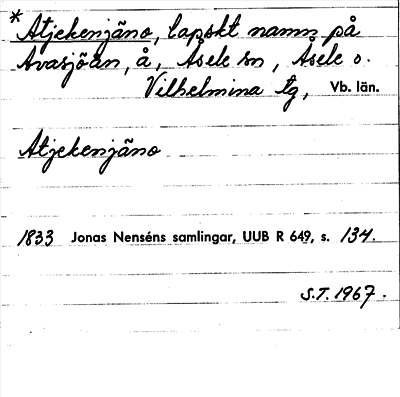 * Atjekenjäno, lapskt namn på
Avasjöån, å, Åsele sn, Åsele o.
Vilhelmina tg, Vb. län.
Atjekenjäno
1833 Jonas Nenséns samlingar, UUB R 649, s. 134.
S.T. 1967.